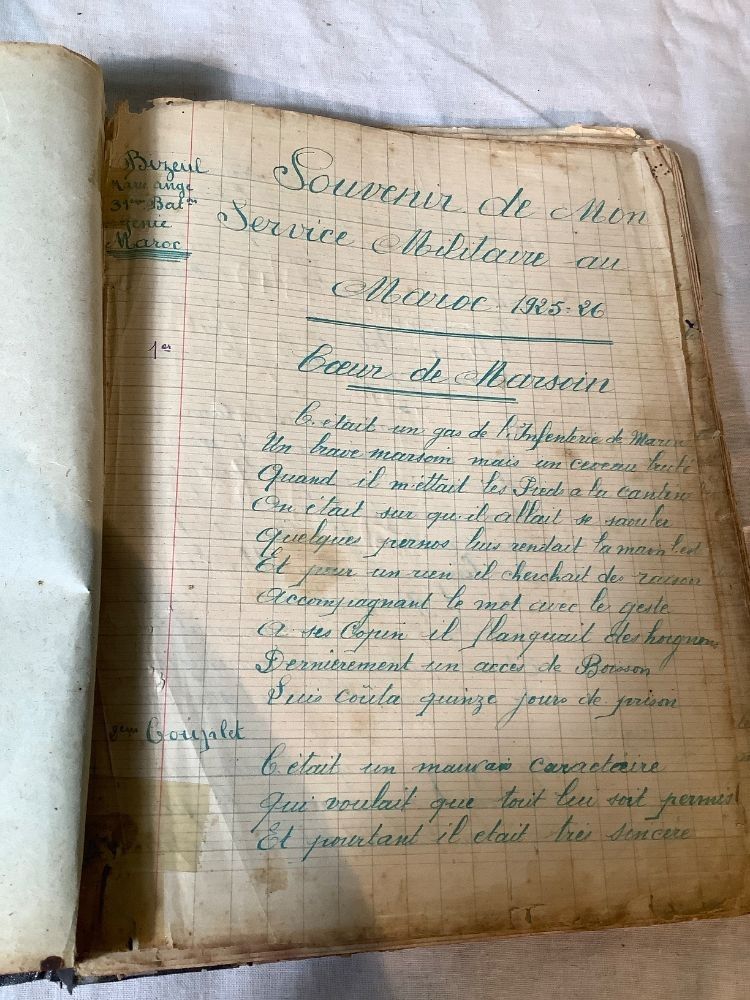 Bizeul
Marie ange
31ème Bat on
génie
Maroc
Souvenir de Mon
Service Militaire au
Maroc 1925-26
1er
Cœur de Marsoin
C'etait un gas de l'Infenterie de Marin
Un brave marsoin mais un cerveau brulé
Quand il mettait les Pieds a la cantin
On était sur qu'il allait se saouler
Quelques pernos luis rendait la main lest
Et pour un rien il cherchait des raison
Accompagnant le mot avec le geste
A ses Copin il flanquait des horgnons
Dernièrement un accès de Boisson
Luis coûta quinze jours de prison
2eme Couplet
C'était un mauvais caractaire
Qui voulait que tout lui soit permis
Et pourtant il etait très sincère